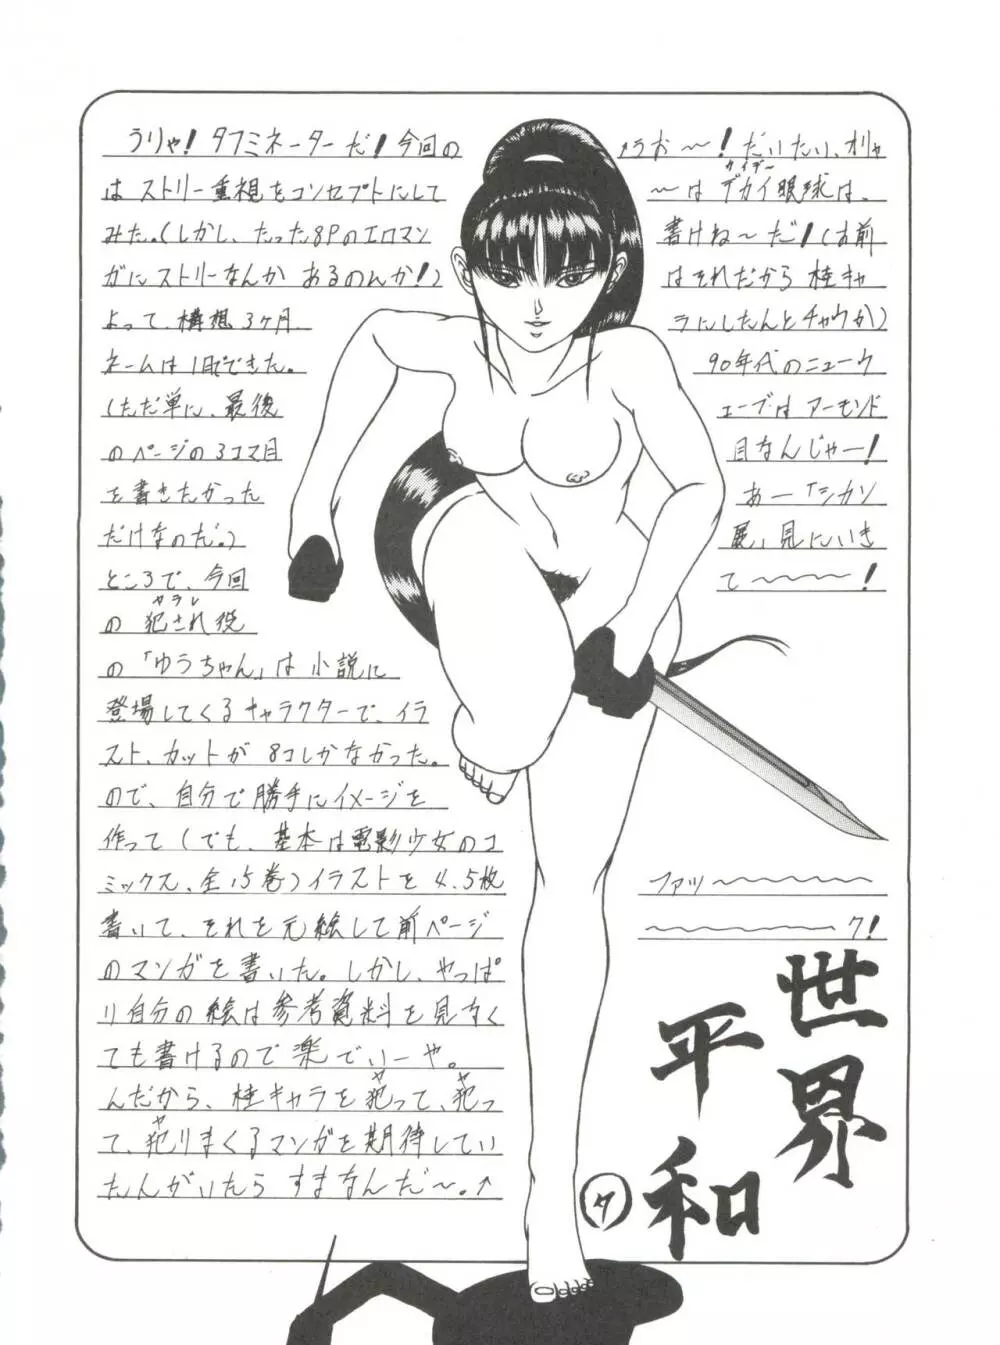 うりゃ!タフミネーターだ!今回の
はストリー重視をコンセプトにして
みた。(しかし、たった8Pのエロマン
ガにストリーなんかあるのんか!)
よって、構想3ヶ月、
ネームは1日でできた。
(ただ単に、最後
のページの3コマ目
を書きたかった
だけなのだ。)
ところで、今回
の犯され役
ヤラレ
の「ゆうちゃん」は小説に
登場してくるキャラクターで、イラ
スト、カットが8コしかなかった。
ので、自分で勝手にイメージを
作って(でも、基本は電影少女のコ
ミックス、全15巻)イラストを4.5枚
書いて、それを元絵して前ページ
のマンガを書いた。しかし、やっぱ
り自分の絵は参考資料を見なく
ても書けるので楽でいーや。
んだから、桂キャラを犯って、犯っ
ヤ ヤ
て、犯りまくるマンガを期待してい
ヤ
たんがいたらすまなんだ〜。↑
うお〜!だいたい、オリャ
〜はデカイ眼球は、
カイデー
書けね〜だ!(お前
はそれだから桂キャ
ラにしたんとチャウか)
90年代のニューウ
ェーブはアーモンド
目なんじゃー!
あー「シカソ
展」見にいき
て〜〜〜!
ファッ〜〜〜〜〜
〜〜〜〜〜〜ク!
世界
平和
タ